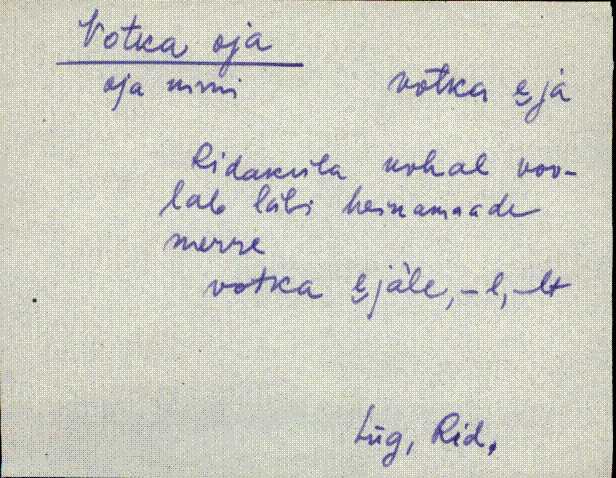 Votka oja
oja nimi votka e̮jä
Ridaküla kohal voo-
lab läbi heinamaade
merre
votka e̮jäle, -l, -lt
Lüg, Rid.